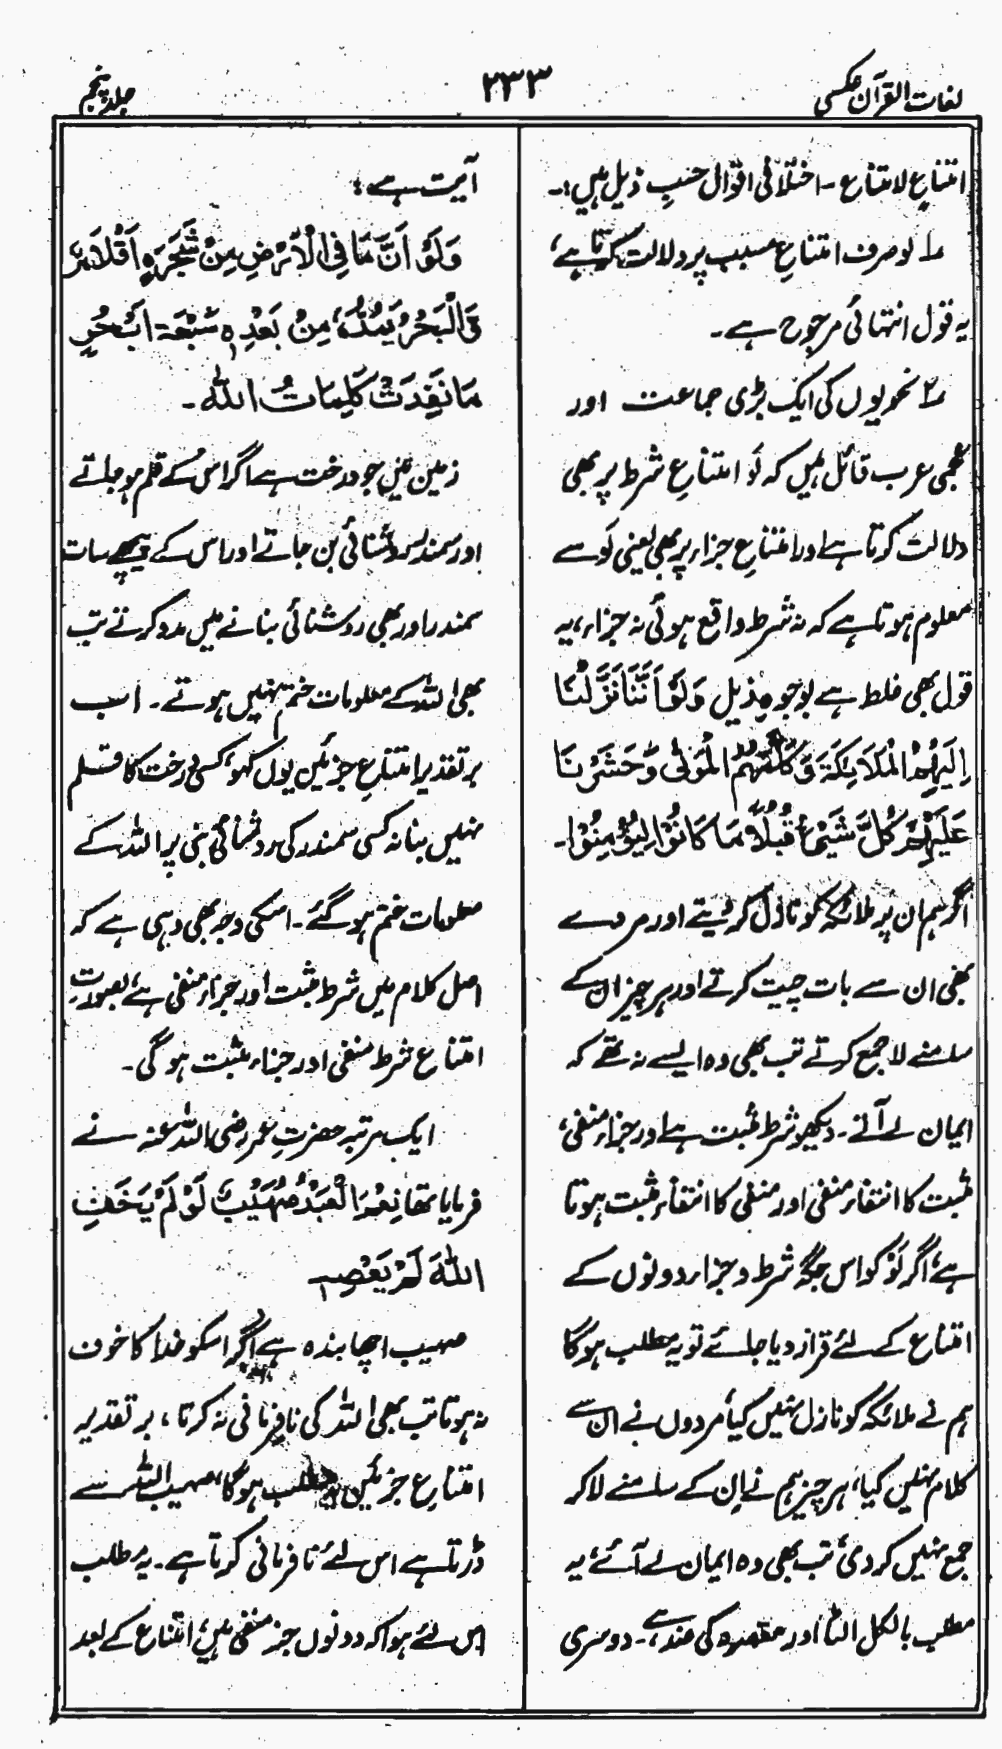 لغات القرآن عکسی
۲۳۳
جلد پنجم
امتناعِ لامتناع ۔ اختلافی اقوال حسبِ ذیل ہیں:۔
۱؎ لو صرف امتناعِ مسبب پر دلالت کرتا ہے،
یہ قول انتہائی مرجوح ہے۔
۲؎ نحویوں کی ایک بڑی جماعت اور
عجمی عرب قائل ہیں کہ لَو امتناعِ شرط پر بھی
دلالت کرتا ہے اور امتناعِ جزاء پر بھی یعنی لَو سے
معلوم ہوتا ہے کہ نہ شرط واقع ہوئی نہ جزاء، یہ
قول بھی غلط ہے بوجوہِ ذیل وَلَوْ اَنَّنَا نَزَّلْنَا
اِلَیْهِمُ الْمَلَائِكَةَ وَكَلَّمَهُمُ الْمَوْتٰى وَحَشَرْنَا
عَلَیْهِمْ كُلَّ شَیْءٍ قُبُلًا مَا كَانُوْا لِیُؤْمِنُوْا۔
اگر ہم ان پر ملائکہ کو نازل کر دیتے اور مردے
بھی ان سے بات چیت کرتے اور ہر چیز ان کے
سامنے لا جمع کرتے تب بھی وہ ایسے نہ تھے کہ
ایمان لے آتے۔ دیکھو شرط مثبت ہے اور جزاء منفی،
مثبت کا انتفاء منفی اور منفی کا انتفاء مثبت ہوتا
ہے، اگر لَوْ کو اس جگہ شرط و جزاء دونوں کے
امتناع کے لئے قرار دیا جائے تو یہ مطلب ہوگا
ہم نے ملائکہ کو نازل نہیں کیا، مردوں نے ان سے
کلام نہیں کیا، ہر چیز ہم نے ان کے سامنے لاکر
جمع نہیں کر دی، تب بھی وہ ایمان لے آئے، یہ
مطلب بالکل الٹا اور مقصود کی ضد ہے،۔ دوسری
آیت ہے:
وَلَوْ اَنَّ مَا فِی الْاَرْضِ مِنْ شَجَرَةٍ اَقْلَامٌ
وَالْبَحْرُ یَمُدُّهٗ مِنْ بَعْدِهٖ سَبْعَةُ اَبْحُرٍ
مَا نَفِدَتْ كَلِمَاتُ اللهِ۔
زمین میں جو درخت ہے اگر اس کے قلم ہو جاتے
اور سمندر روشنائی بن جاتے اور اس کے پیچھے سات
سمندر اور بھی روشنائی بنانے میں مدد کرتے تب
بھی اللہ کے معلومات ختم نہیں ہوتے۔ اب
بر تقدیر امتناعِ جزئین یوں کہو، کسی درخت کا قلم
نہیں بنا نہ کسی سمندر کی روشنائی بنی پر اللہ کے
معلومات ختم ہو گئے۔ اسکی وجہ بھی وہی ہے کہ
اصل کلام میں شرط مثبت اور جزاء منفی ہے، بصورتِ
امتناع شرط منفی اور جزاء مثبت ہو گی۔
ایک مرتبہ حضرت عمر رضی اللہ عنہ نے
فرمایا تھا نِعْمَ الْعَبْدُ صُهَیْبٌ لَوْ لَمْ یَخَفِ
اللهَ لَمْ یَعْصِهٖ
صہیب اچھا بندہ ہے اگر اسکو خدا کا خوف
نہ ہوتا تب بھی اللہ کی نافرمانی نہ کرتا، بر تقدیر
امتناعِ جزئین مطلب ہوگا، صہیب اللہ سے
ڈرتا ہے اس لئے نافرمانی کرتا ہے۔ یہ مطلب
اس لئے ہوا کہ دونوں جز منفی ہیں، امتناع کے بعد